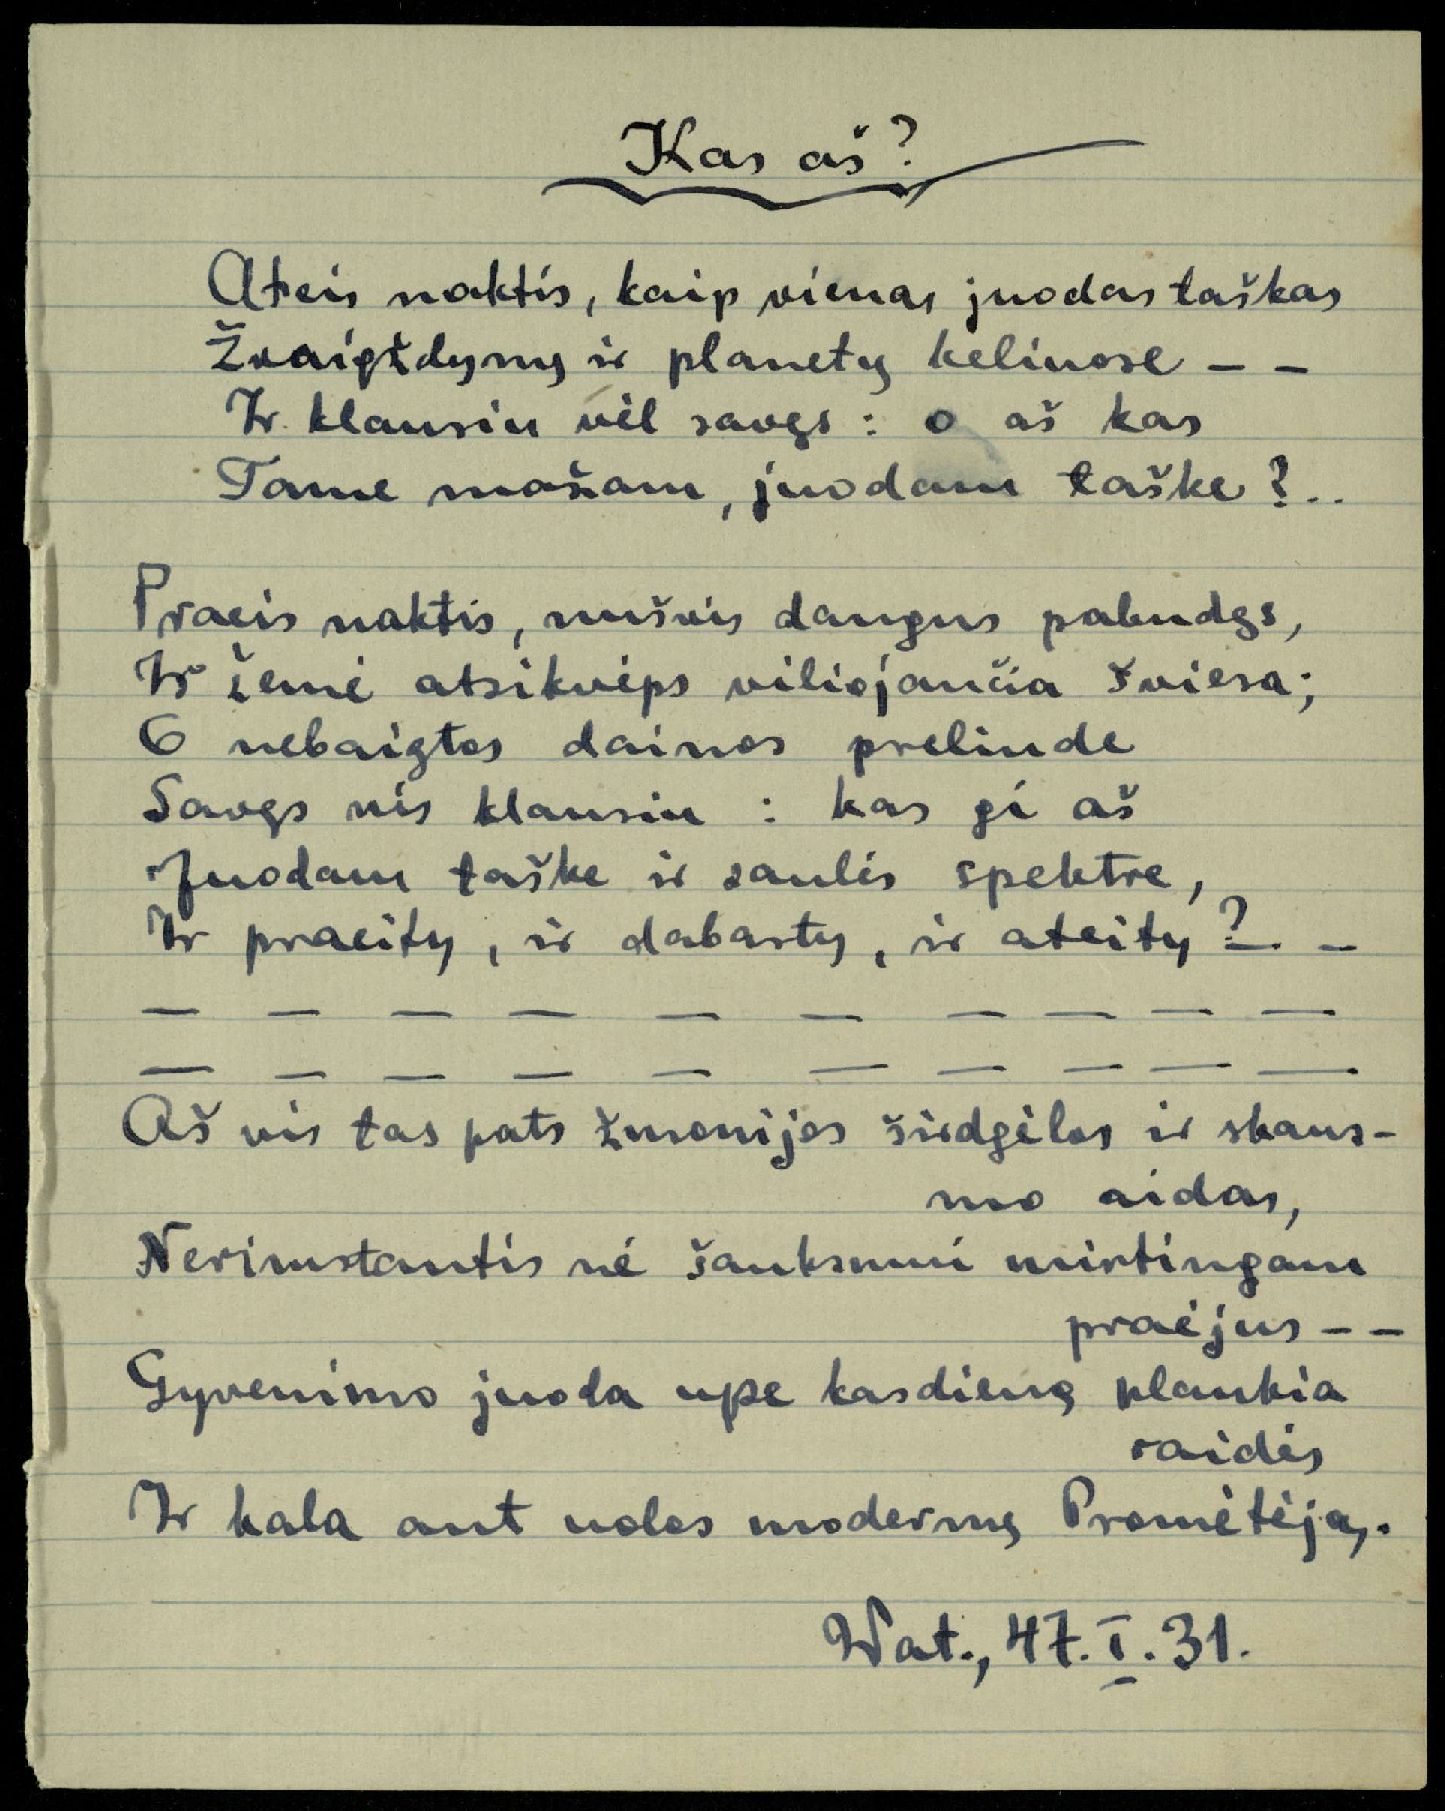 Kas aš?
Ateis naktis, kaip vienas juodas taškas
Žvaigždynų ir planetų keliuose – –
Ir klausiu vėl savęs: o aš kas
Tame mažam, juodam taške?..
Praeis naktis, nušvis dangus pabudęs,
Ir žemė atsikvėps viliojančia šviesa;
O nebaigtos dainos preliude
Savęs vis klausiu: kas gi aš
Juodam taške ir saulės spektre,
Ir praeity, ir dabarty, ir ateity? – –
– – – – – – – – – –
– – – – – – – – – –
Aš vis tas pats žmonijos širdgėlos ir skaus-
mo aidas,
Nerimstantis nė šauksmui mirtingam
praėjus – –
Gyvenimo juoda upe kasdieną plaukia
raidės
Ir kala ant uolos modernų Prometėjų.
Wat., 47.I.31.